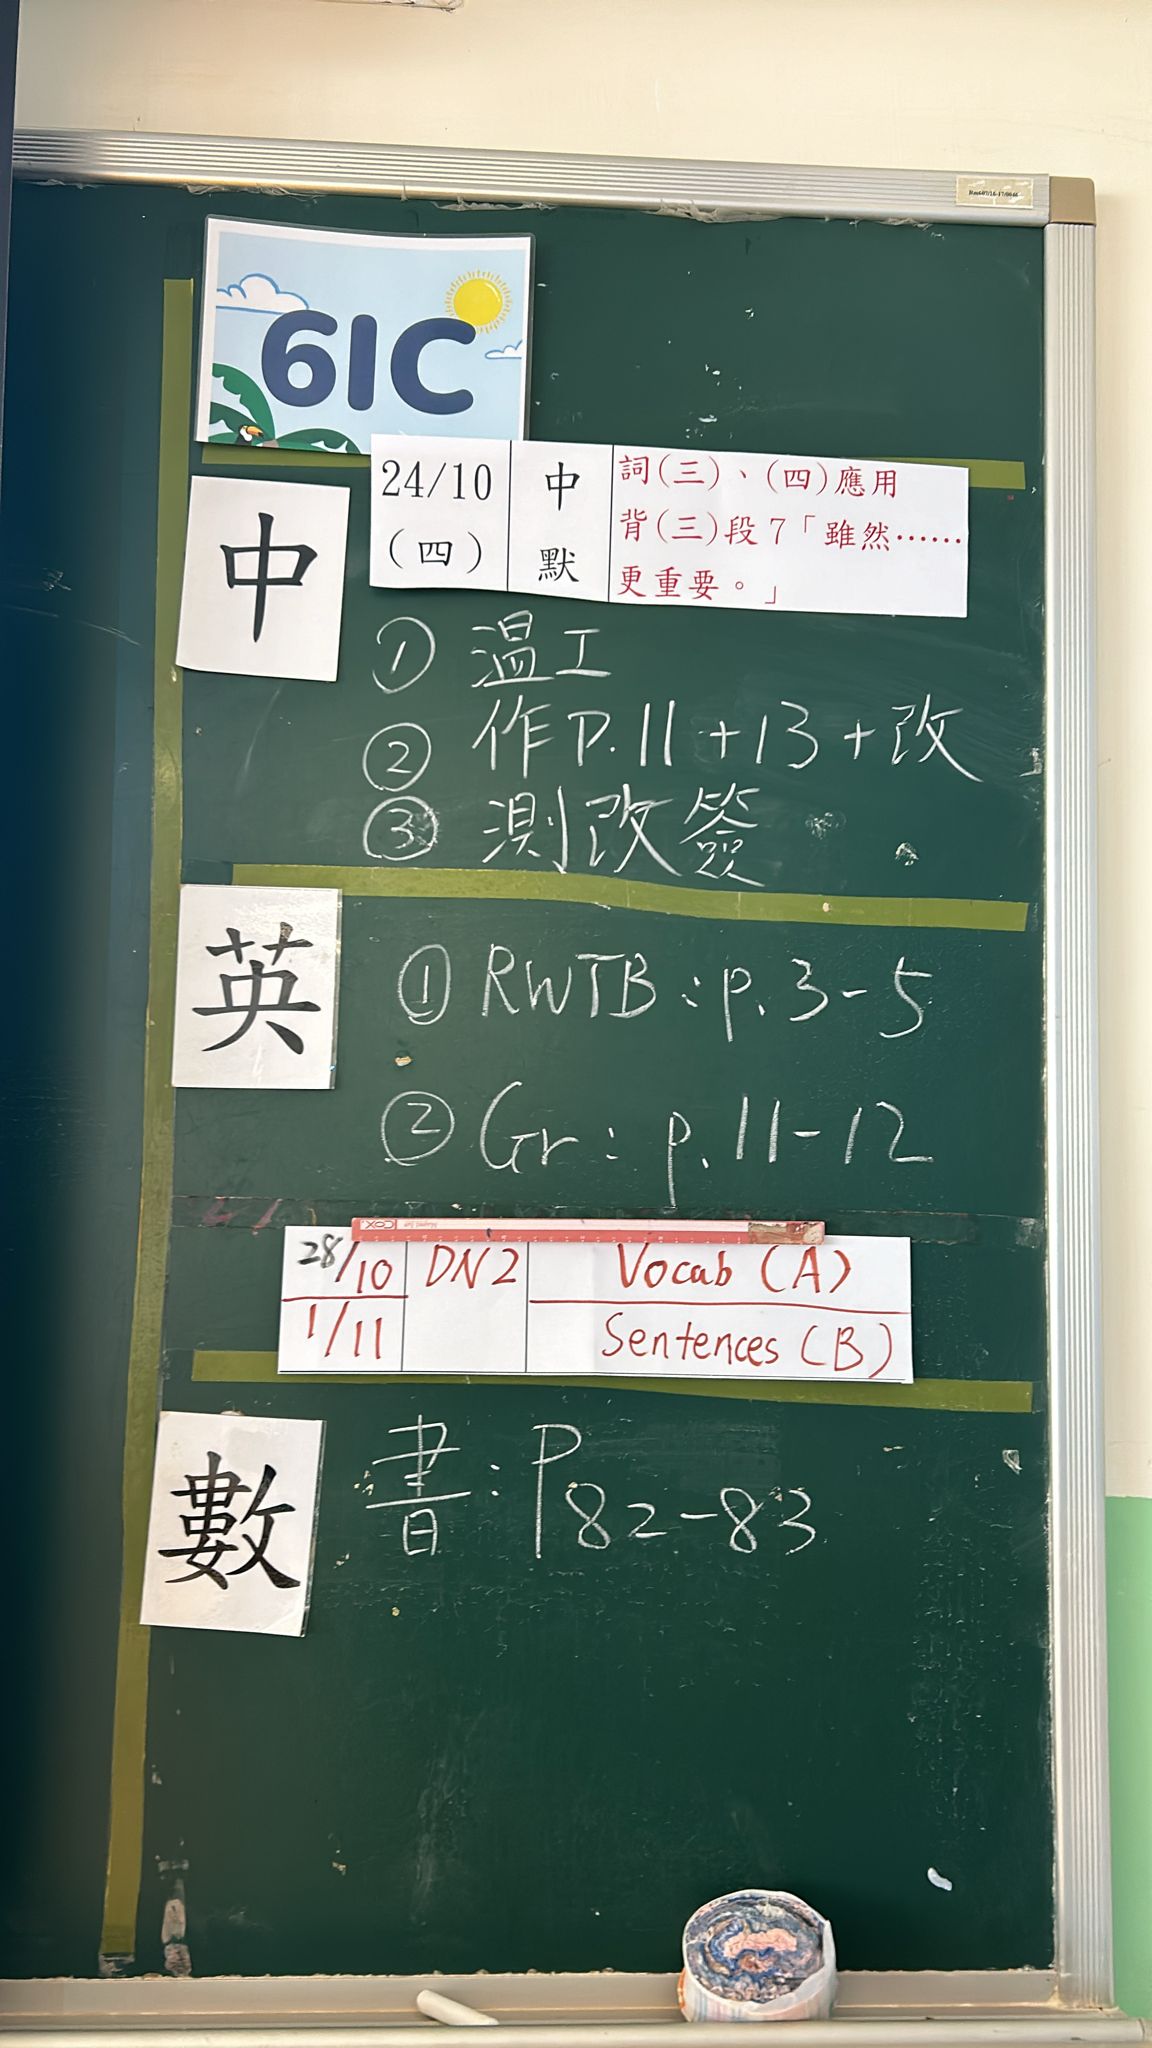 61C
中
24/10
(四)
中
默
詞(三)、(四)應用
背(三)段7「雖然……
更重要。」
① 溫工
② 作P.11+13+改
③ 測改簽
英
① RWTB:p.3-5
② Gr: p.11-12
28/10
1/11
DN2
Vocab (A)
Sentences (B)
數
書:P82-83